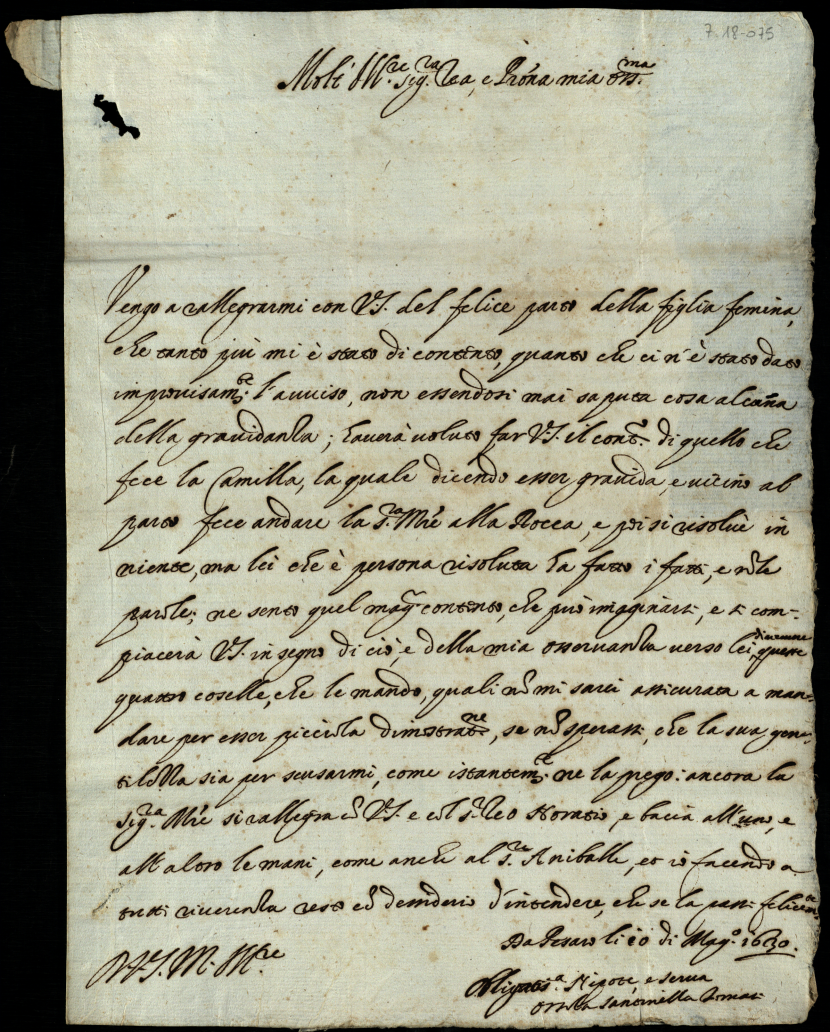 7.18-075
Molt' Ill.re Sig.ra Zia, e Pròna mia oss.ma
Vengo a rallegrarmi con V.S. del felice parto della figlia femina,
che tanto più mi è stato di contento, quanto che ci n'è stato dato
improvisam.te l'auuiso, non essendosi mai saputa cosa alcuna
della grauidanza; hauerà uoluto far V.S. il cont.o di quello che
fece la Camilla, la quale dicendo esser grauida, e uicino al
parto fece andare la S.ra Mre alla Rocca, e poi si risoluè in
niente, ma lei che è persona risoluta ha fatto i fatti, e nò le
parole; ne sento quel mag.r contento, che può imaginarsi, e si com-
piacerà V.S. in segno di ciò, e della mia osseruanza uerso lei, di riceuere queste
quattro coselle, che le mando, quali nò mi sarei assicurata a man-
dare per esser picciola dimostrat.ne, se nò sperassi, che la sua gen-
tilezza sia per scusarmi, come istantem.te ne la prego: ancora la
Sig.ra Mre si rallegra cò V.S. e col S.r Zio Horatio, e bacia all'uno, e
all'altro le mani, come anche al S.r Aniballe, et io facendo a
tutti riuerenza resto cò desiderio d'intendere, che se la passi felicem.te
Da Pesaro li 10 di Mag.o 1630.
D.V.S. M. Ill.re
Obligatis.a Nipote e serua